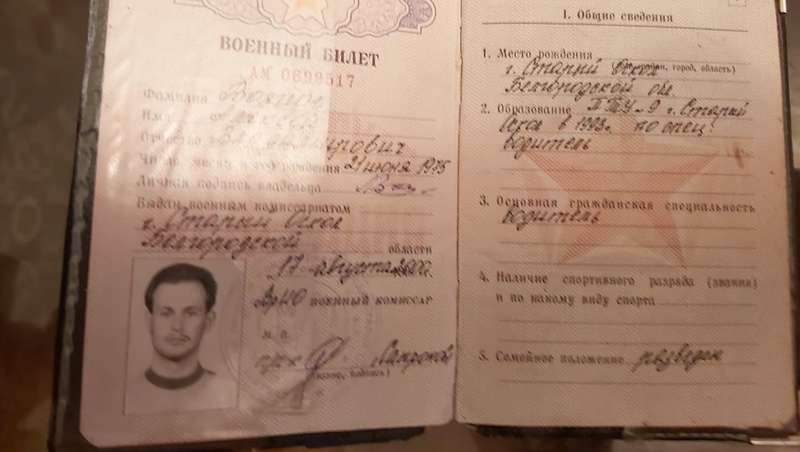 ВОЕННЫЙ БИЛЕТ
АМ 0692517
Фамилия
Имя
Отчество
Число, месяц и год рождения 21 июня 1975
Личная подпись владельца
Выдан военным комиссариатом
г. Старый Оскол
Белгородской области
17 августа 2000
ВрИО военный комиссар
М. П.
(звание, подпись)
I. Общие сведения
1. Место рождения
г. Старый Оскол (город, область)
Белгородской обл.
2. Образование ПТУ-9 г. Старый
Оскол в 1993г. по спец.
водитель
3. Основная гражданская специальность
водитель
4. Наличие спортивного разряда (звания)
и по какому виду спорта
5. Семейное положение разведен